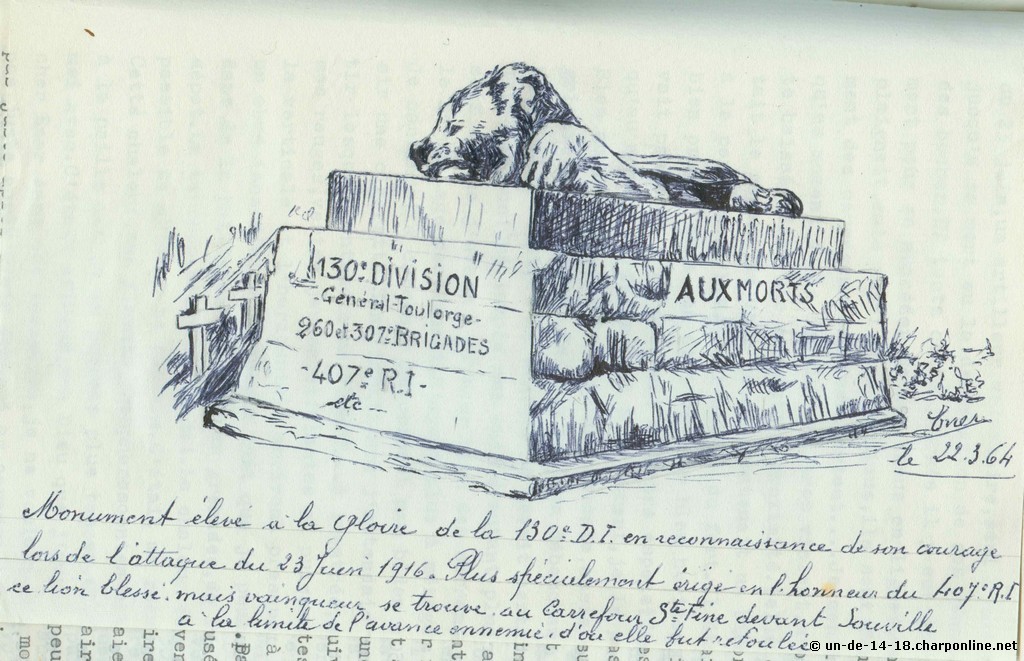 130e DIVISION
-Général Toulorge-
260 et 307e BRIGADES
-407e R.I-
etc...
AUX MORTS
le 22.3.64
Monument élevé à la gloire de la 130e D.I. en reconnaissance de son courage
lors de l'attaque du 23 Juin 1916. Plus spécialement érigé en l'honneur du 407e R.I
ce lion blessé, mais vainqueur se trouve au Carrefour Ste Fine devant Souville
à la limite de l'avance ennemie, d'où elle fut refoulée
© un-de-14-18.charponline.net